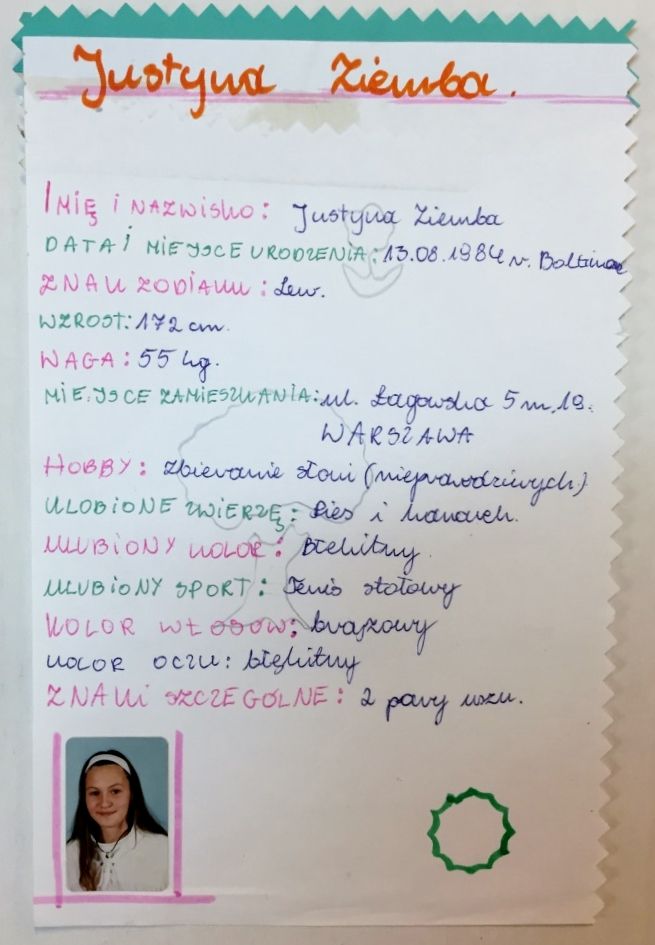 Justyna Ziemba.
IMIĘ I NAZWISKO: Justyna Ziemba
DATA I MIEJSCE URODZENIA: 13.08.1984 r. Baltimore
ZNAK ZODIAKU: Lew.
WZROST: 172 cm.
WAGA: 55 kg.
MIEJSCE ZAMIESZKANIA: ul. Łagowska 5 m. 19.
WARSZAWA
HOBBY: Zbieranie słoni (nieprawdziwych)
ULUBIONE ZWIERZĘ: Pies i kanarek.
ULUBIONY KOLOR: Błękitny.
ULUBIONY SPORT: Tenis stołowy
KOLOR WŁOSÓW: brązowy
KOLOR OCZU: błękitny
ZNAKI SZCZEGÓLNE: 2 pary uszu.